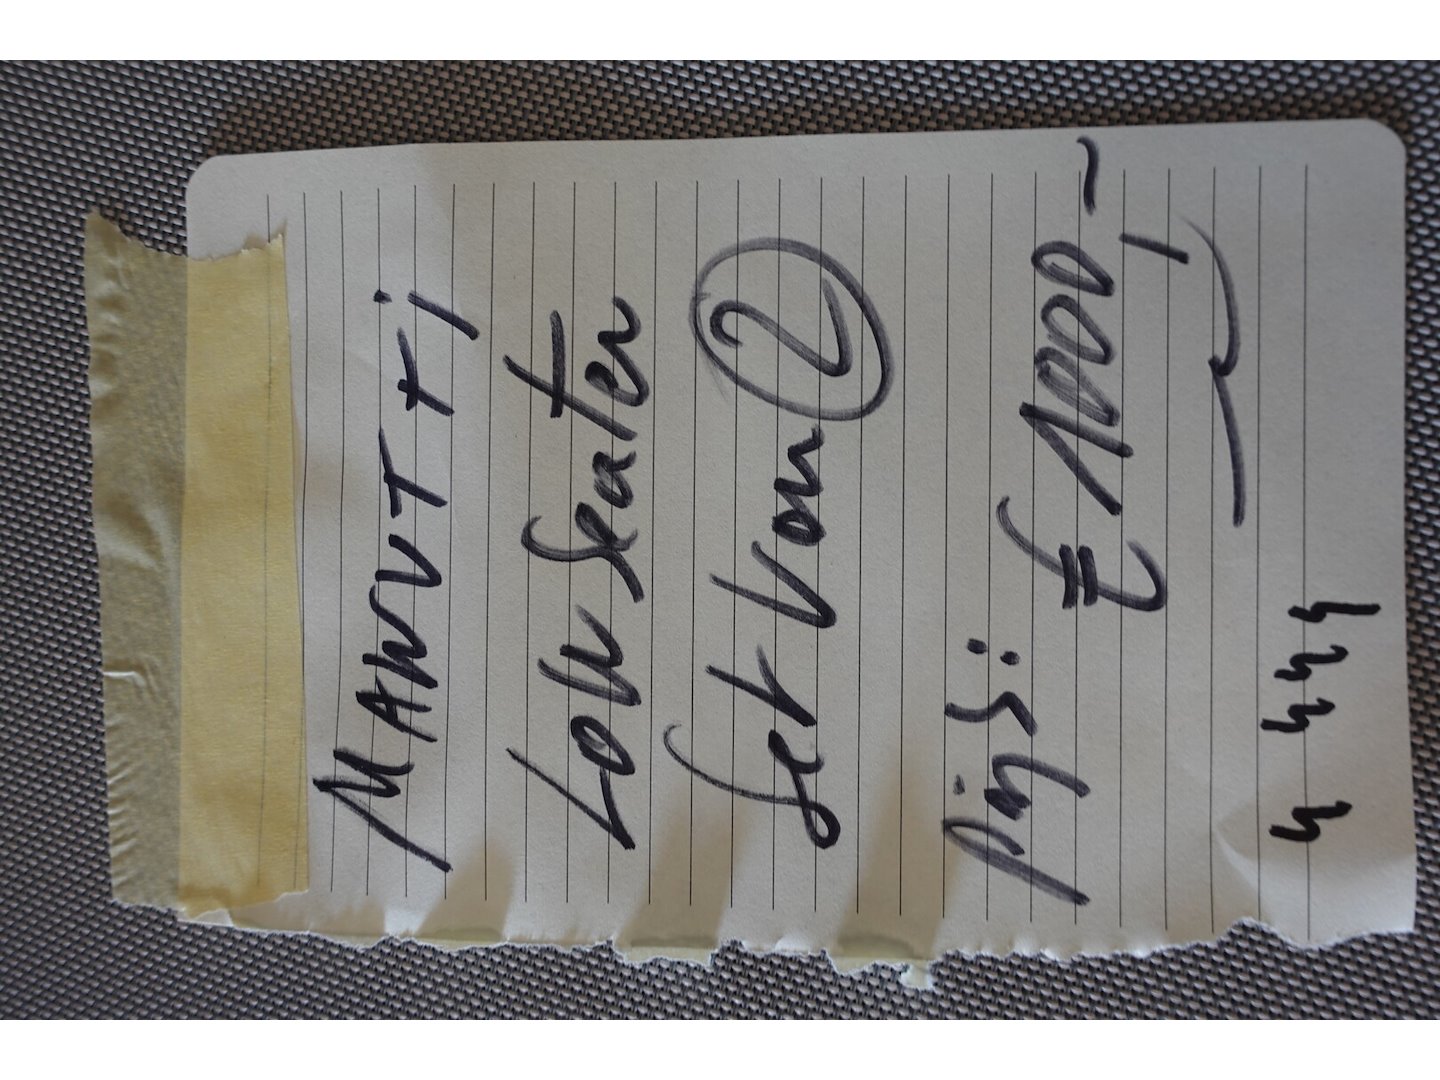 MANUTTi
Low Seater
Set Van 2
prijs: € 1000,-